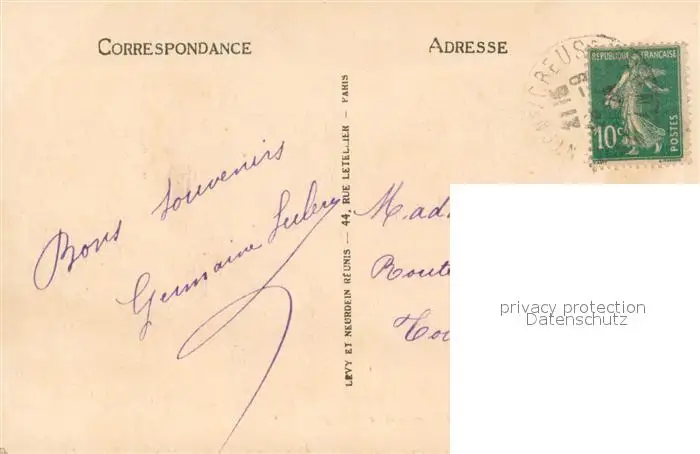 CORRESPONDANCE
ADRESSE
CREUSE
RÉPUBLIQUE FRANÇAISE
10c
POSTES
Bons souvenirs
Germaine
LEVY ET NEURDEIN RÉUNIS — 44, RUE LETELLIER — PARIS
Mad
Route
privacy protection
Datenschutz